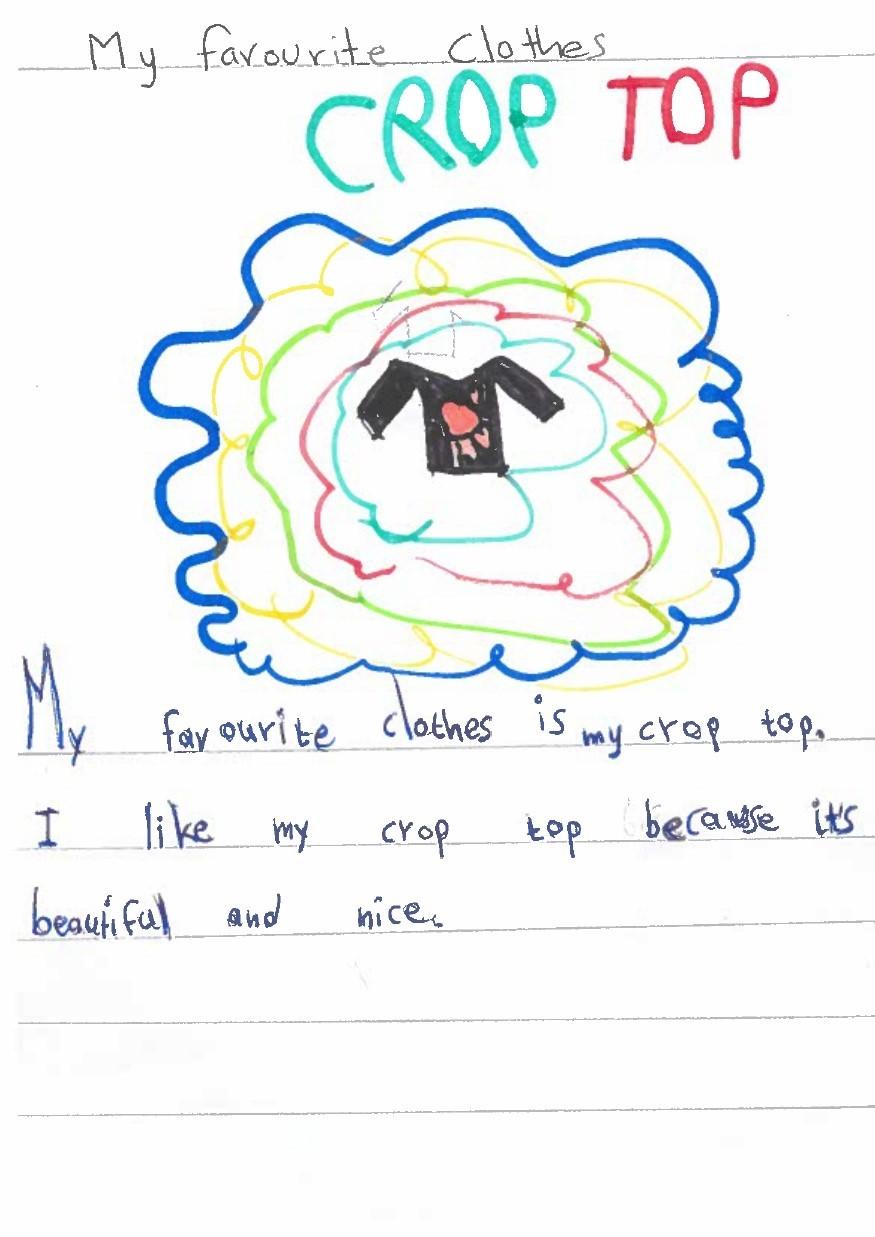 My favourite clothes
CROP TOP
My favourite clothes is my crop top.
I like my crop top because it's
beautiful and nice.